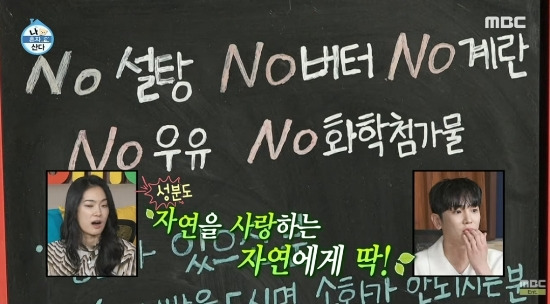 나 혼자 산다
MBC
No 설탕 No 버터 No 계란
No 우유 No 화학첨가물
성분도
자연을 사랑하는
자연에게 딱!
소화가 안되시는분
MBC